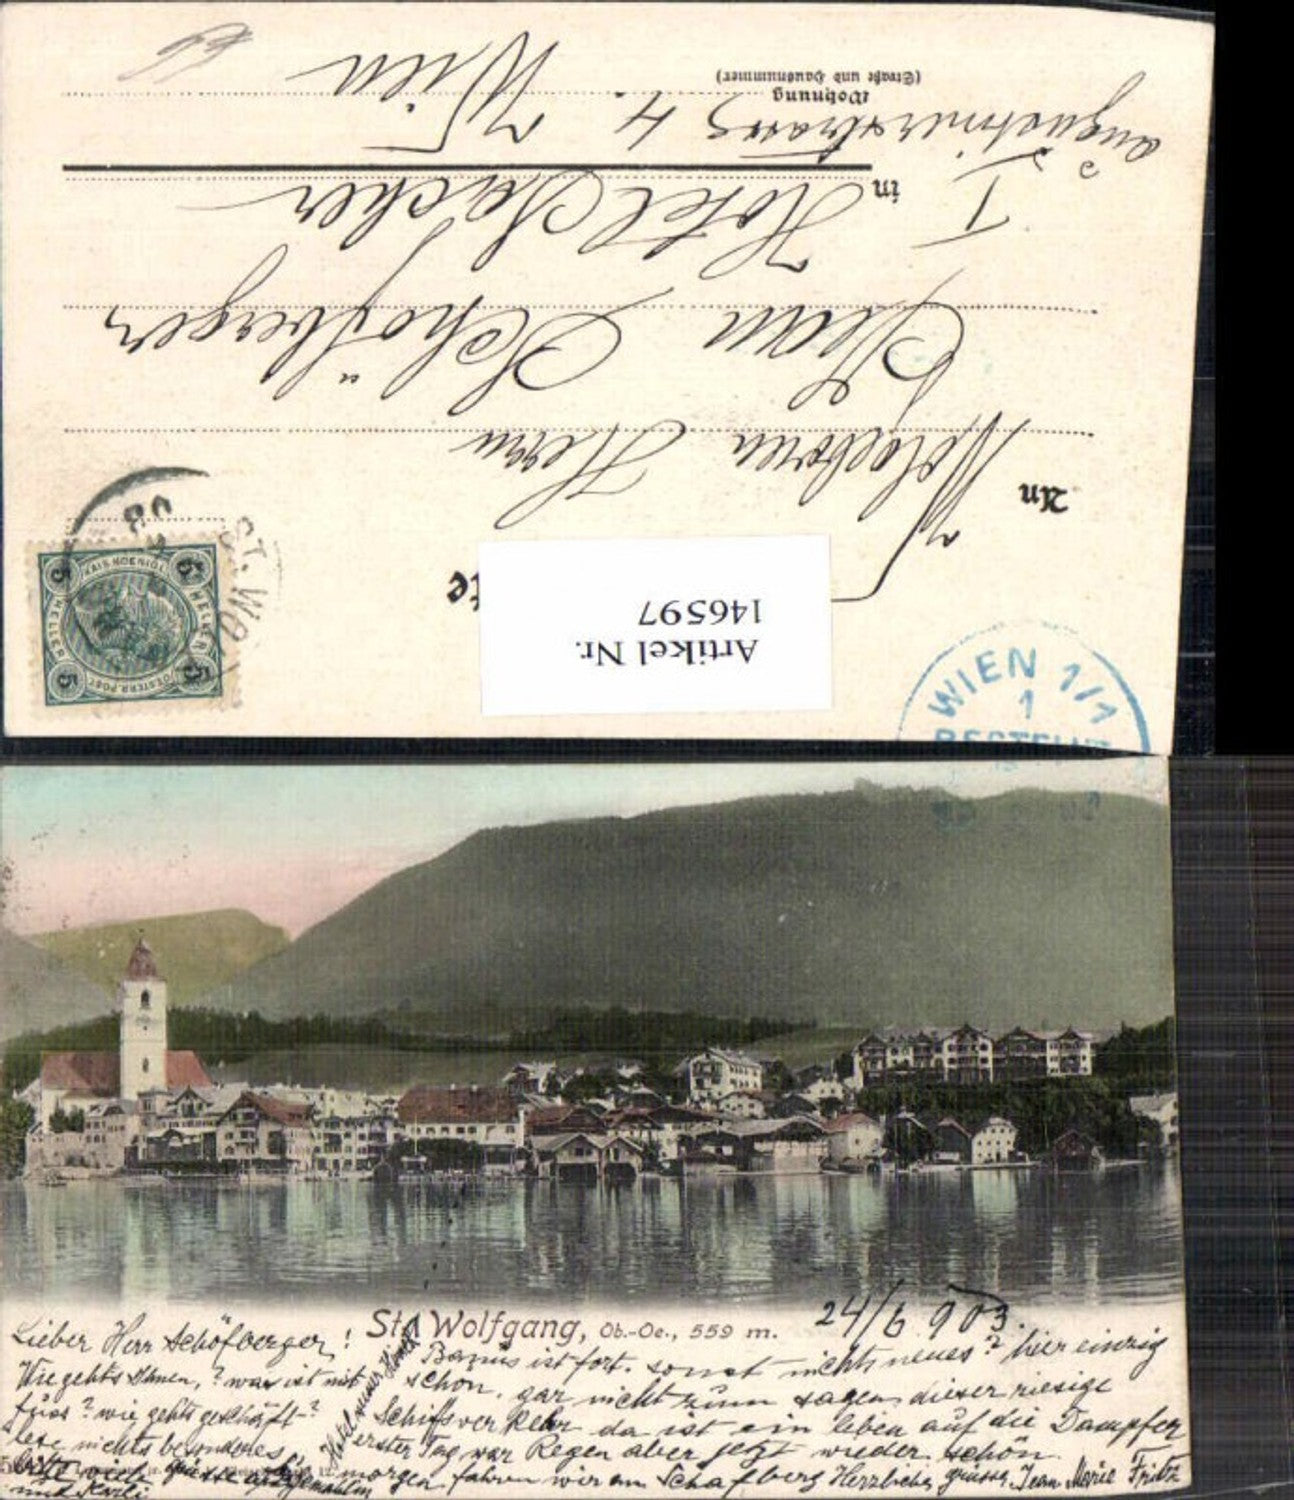 Wien
(Straße und Hausnummer)
Wohnung
augustinerstrass 4.
in
I Hotel Sacher
Jean Schöfberger
Wolgeboren Herrn
An
te
ST. WO
03
5 5
KAIS. KOENIGL.
HELLER HELLER
OESTERR. POST
5 5
146597
Artikel Nr.
WIEN 1/1
1
BESTELLT
St. Wolfgang, Ob.-Oe., 559 m.
24/6 903.
Lieber Herr Schöfberger!
Wie gehts Ihnen,? was ist mit
füss? wie gehts geschäft-?
lese nichts besonderes,
Bitte viele grüsse
und Karli
Hotel
ist fort. sonst nichts neues? hier einzig
schön. gar nicht zum sagen dieser riesige
Schiffsverkehr da ist ein leben auf die Dampfer
erster Tag war Regen aber jetzt wieder schön.
morgen fahren wir am Schafberg Herzliche grüsse, Jean Marie Fritz